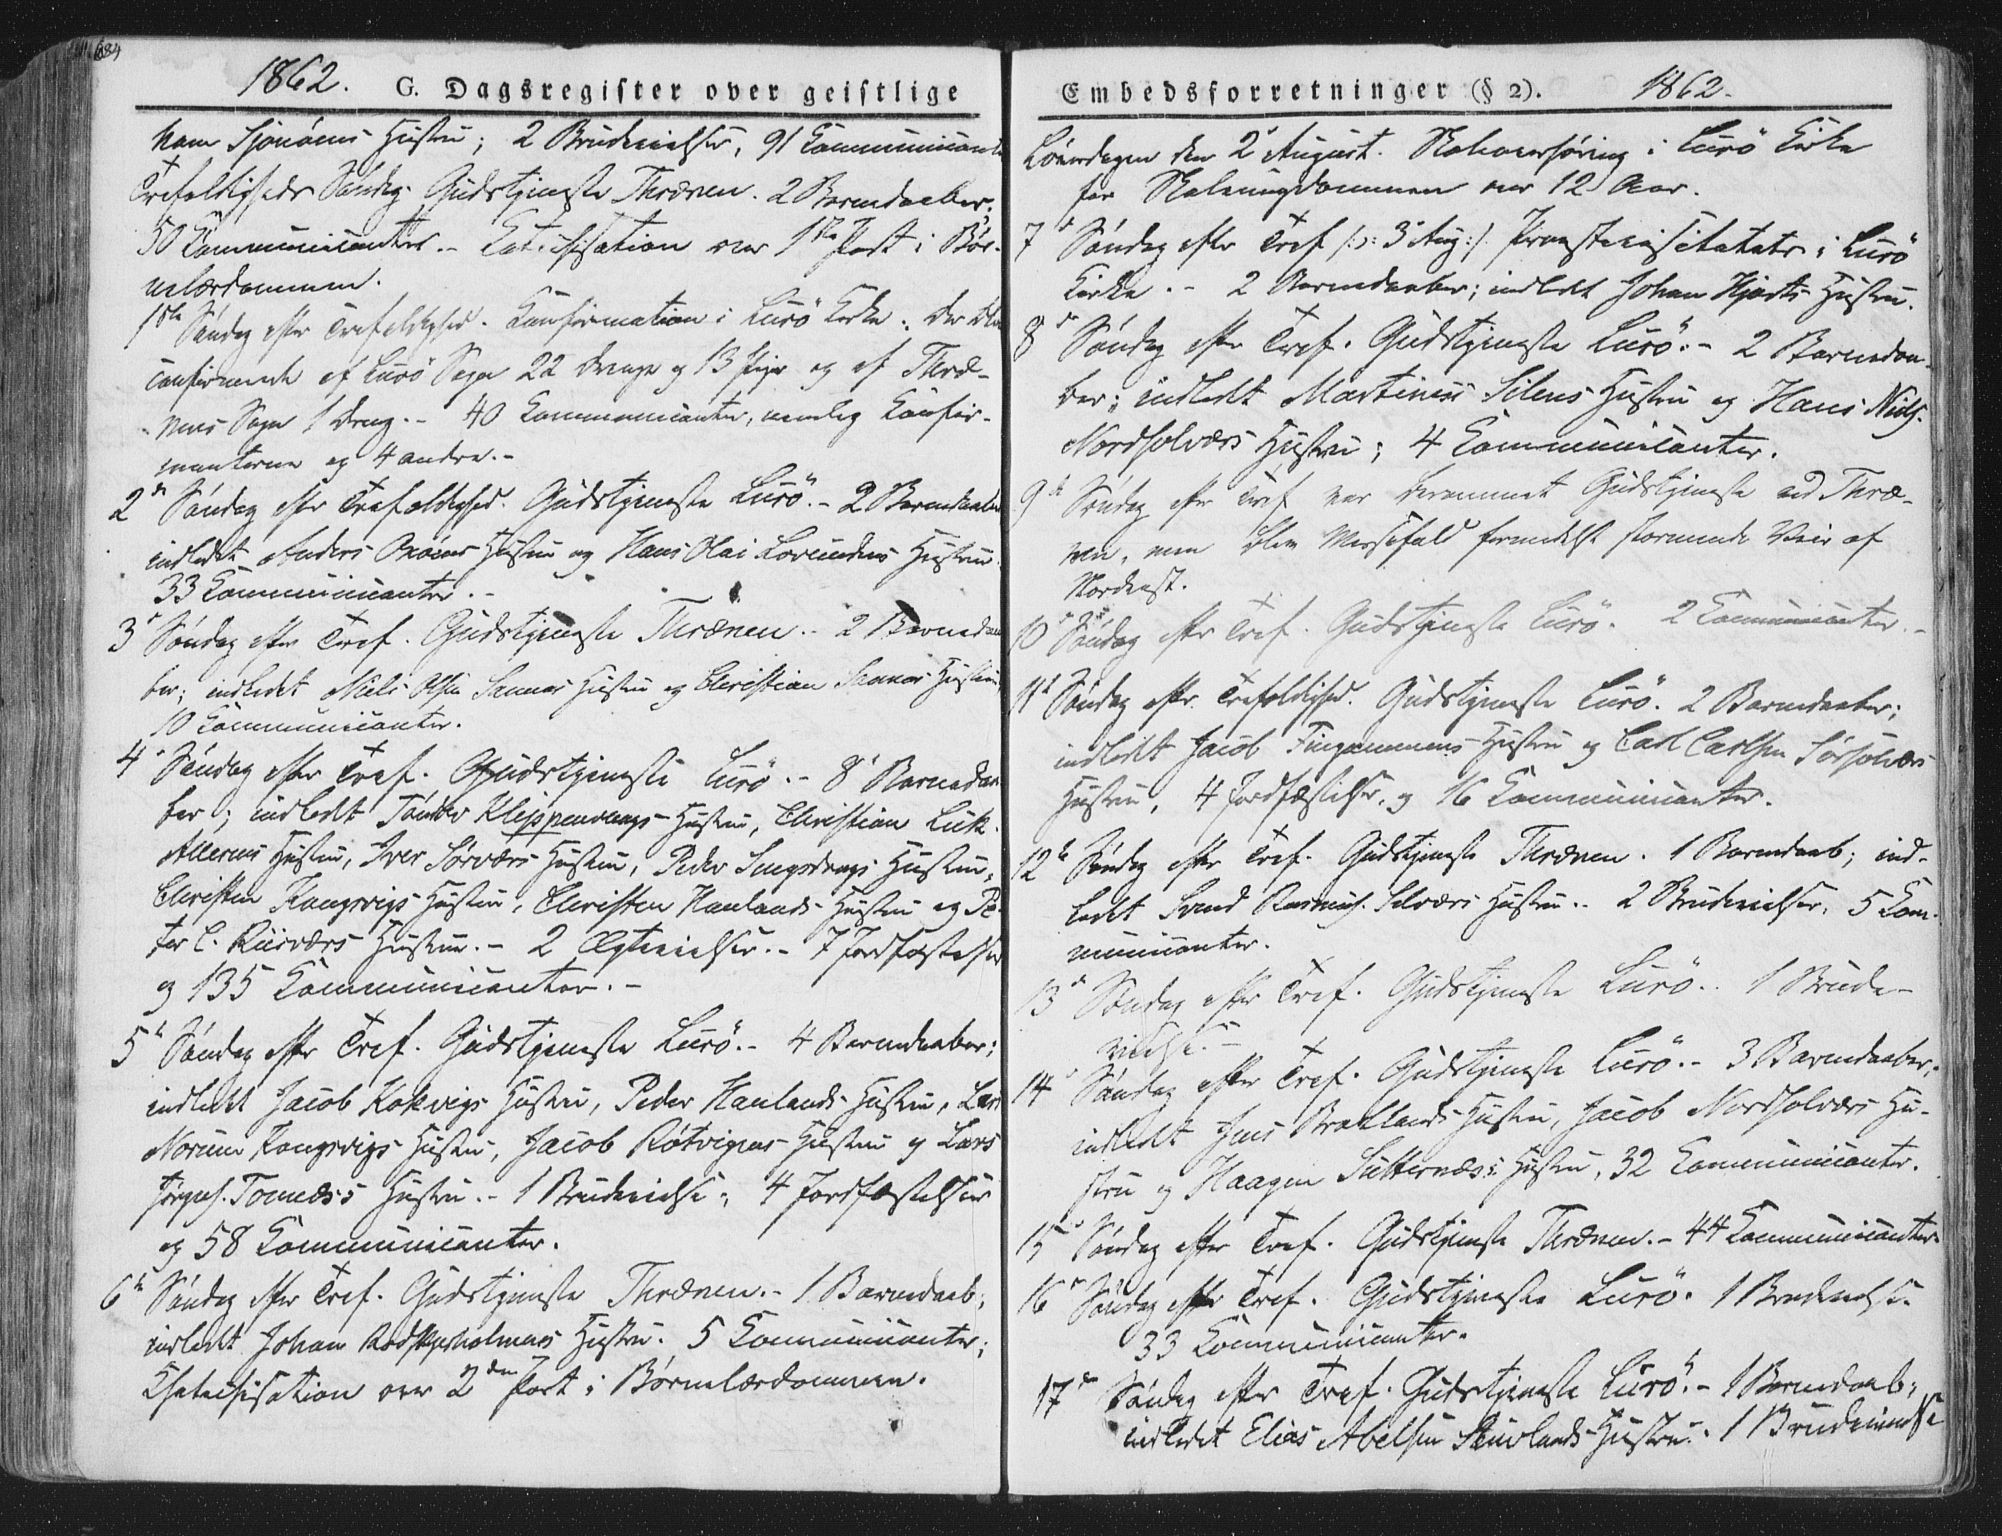 684
1862. G. Dagsregister over geistlige
Hustru; 2 Brudevielser, 91 Communicant
Trefoldigheds Søndag. Gudstjeneste Thrænen. 2 Barnedaaber,
50 Communicanter. - Catechisation over 1ste Part i Bør-
nelærdommen.
1ste Søndag efter Trefoldighed. Confirmation i Lurö Kirke.
confirmerede af Lurö Sogn 22 Drenge og 13 Piger og af Thræ-
nens Sogn 1 Dreng. - 40 Communicanter, nemlig Confir-
manterne og 4 andre. -
2n Søndag efter Trefoldighed. Gudstjeneste Lurö. - 2 Barnedaaber
indledet Anders Hustru og Hans Olai Lovundens Hustru
33 Communicanter. -
3e Søndag efter Tref. Gudstjeneste Thrænen. - 2 Barnedaa
ber; indledet Niels Olsen Sannas Hustru og Christian Sannas Hustru,
10 Communicanter.
4e Søndag efter Tref. Gudstjeneste Lurö. - 8 Barnedaa
ber; indledt Klippenvaags Hustru, Christian
Hustru, Iver Sørværs Hustru, Peder Hustru,
Christen Kongsvigs Hustru, Christen Haulands Hustru og Pe-
ter C. Hustru. - 2 Ægtevielser. - 7 Jordfæstelser
og 135 Communicanter. -
5e Søndag efter Tref. Gudstjeneste Lurö. - 4 Barnedaaber;
indledt Jacob Kokvigs Hustru, Peder Haulands Hustru, Lars
Norum Kongsvigs Hustru, Jacob Røtvigens Hustru og Lars
Tonnæs's Hustru. - 1 Brudevielse; 4 Jordfæstelser
og 58 Communicanter.
6te Søndag efter Tref. Gudstjeneste Thrænen. - 1 Barnedaab;
indledt Johan Hustru. 5 Communicanter;
Chatechisation over 2den Part i Børnelærdommen.
Embedsforretninger (§ 2). 1862.
Løverdagen den 2 August. i Lurö Kirke
for Skoleungdommen over 12 Aar.
7e Søndag efter Tref /:ɔ: 3 Aug:/ Provstevisitats i Lurö
Kirke. - 2 Barnedaaber; indledt Johan Hjorts Hustru.
8e Søndag efter Tref. Gudstjeneste Lurö. - 2 Barnedaa-
ber; indledt Martinus Silens Hustru og Hans Niels.
Nordsolværs Hustru; 4 Communicanter.
9de Søndag efter Tref var berammet Gudstjeneste ved Thræ-
nen, men blev Messefald formedelst stormende Veir af
Nordvest.
10de Søndag efter Tref. Gudstjeneste Lurö. 2 Communicanter. -
11te Søndag efter Trefoldighed. Gudstjeneste Lurö. 2 Barnedaaber;
indledt Jacob Hustru og Carl Carlsen Sørsolværs
Hustru, 4 Jordfæstelser, og 16 Communicanter.
12te Søndag efter Tref. Gudstjeneste Thrænen. 1 Barnedaab; ind-
ledt Svend Rasmus. Selværs Hustru. - 2 Brudevielser, 5 Com-
municanter.
13de Søndag efter Tref. Gudstjeneste Lurö. - 1 Brude-
vielse. -
14e Søndag efter Tref. Gudstjeneste Lurö. - 3 Barnedaaber,
indledt Jens Hustru, Jacob Nordsolværs Hu-
stru og Haagen Sutternæs's Hustru, 32 Communicanter.
15e Søndag efter Tref. Gudstjeneste Thrænen. - 44 Communicanter
16de Søndag efter Tref. Gudstjeneste Lurö. 1 Brudevielse
33 Communicanter.
17de Søndag efter Tref. Gudstjeneste Lurö. - 1 Barnedaab;
indledet Elias Abelsen Hustru. - 1 Brudevielse